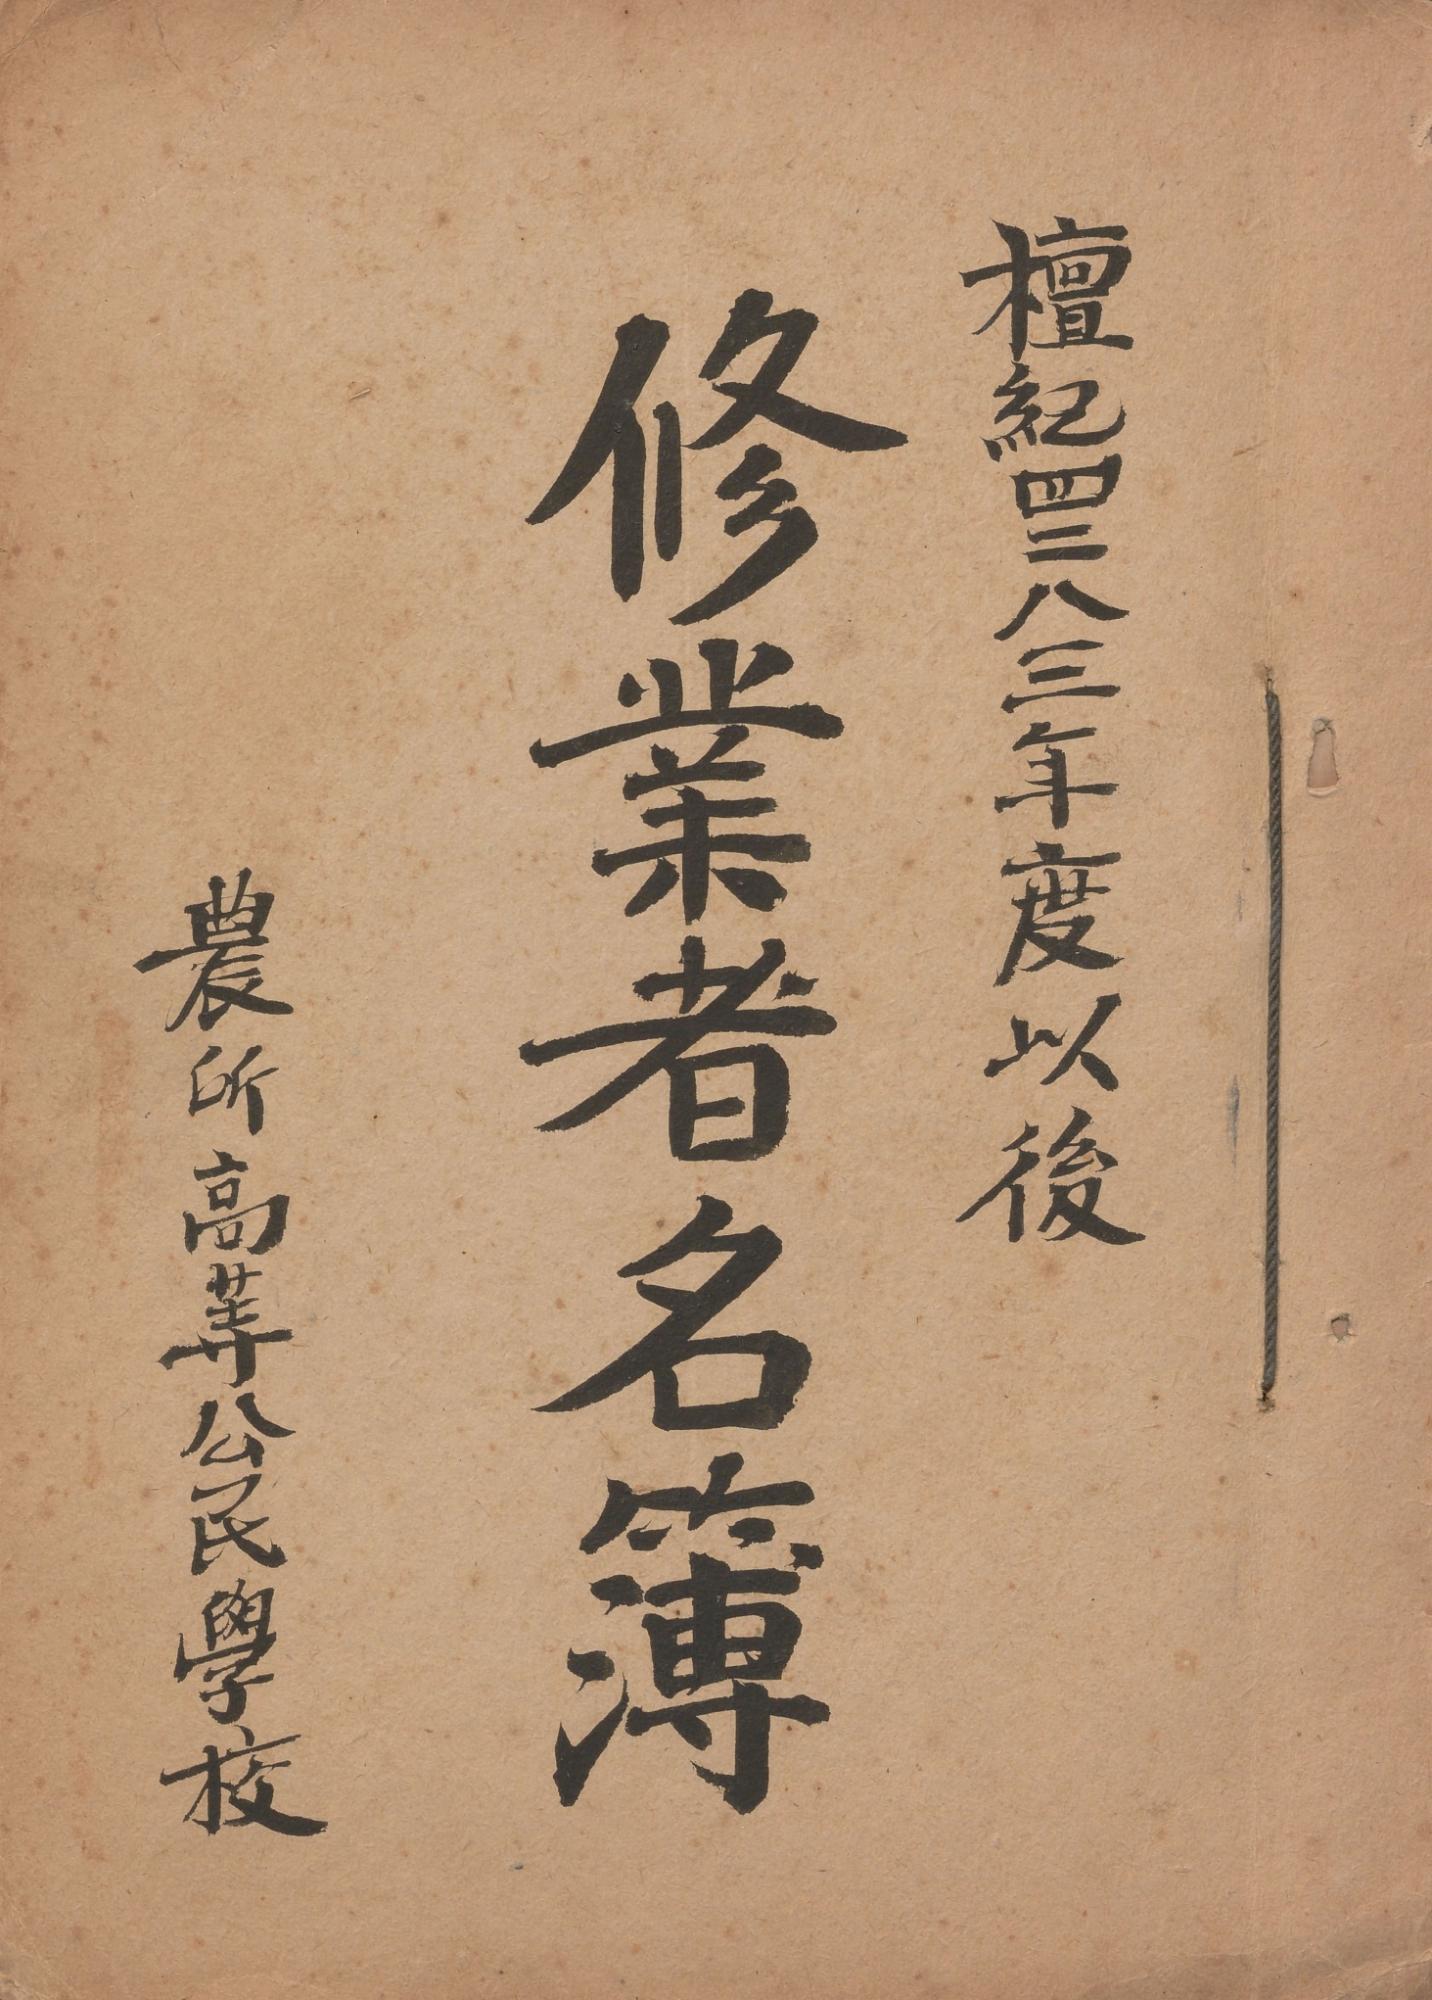 檀紀四二八三年度以後
修業者名簿
農所高等公民學校